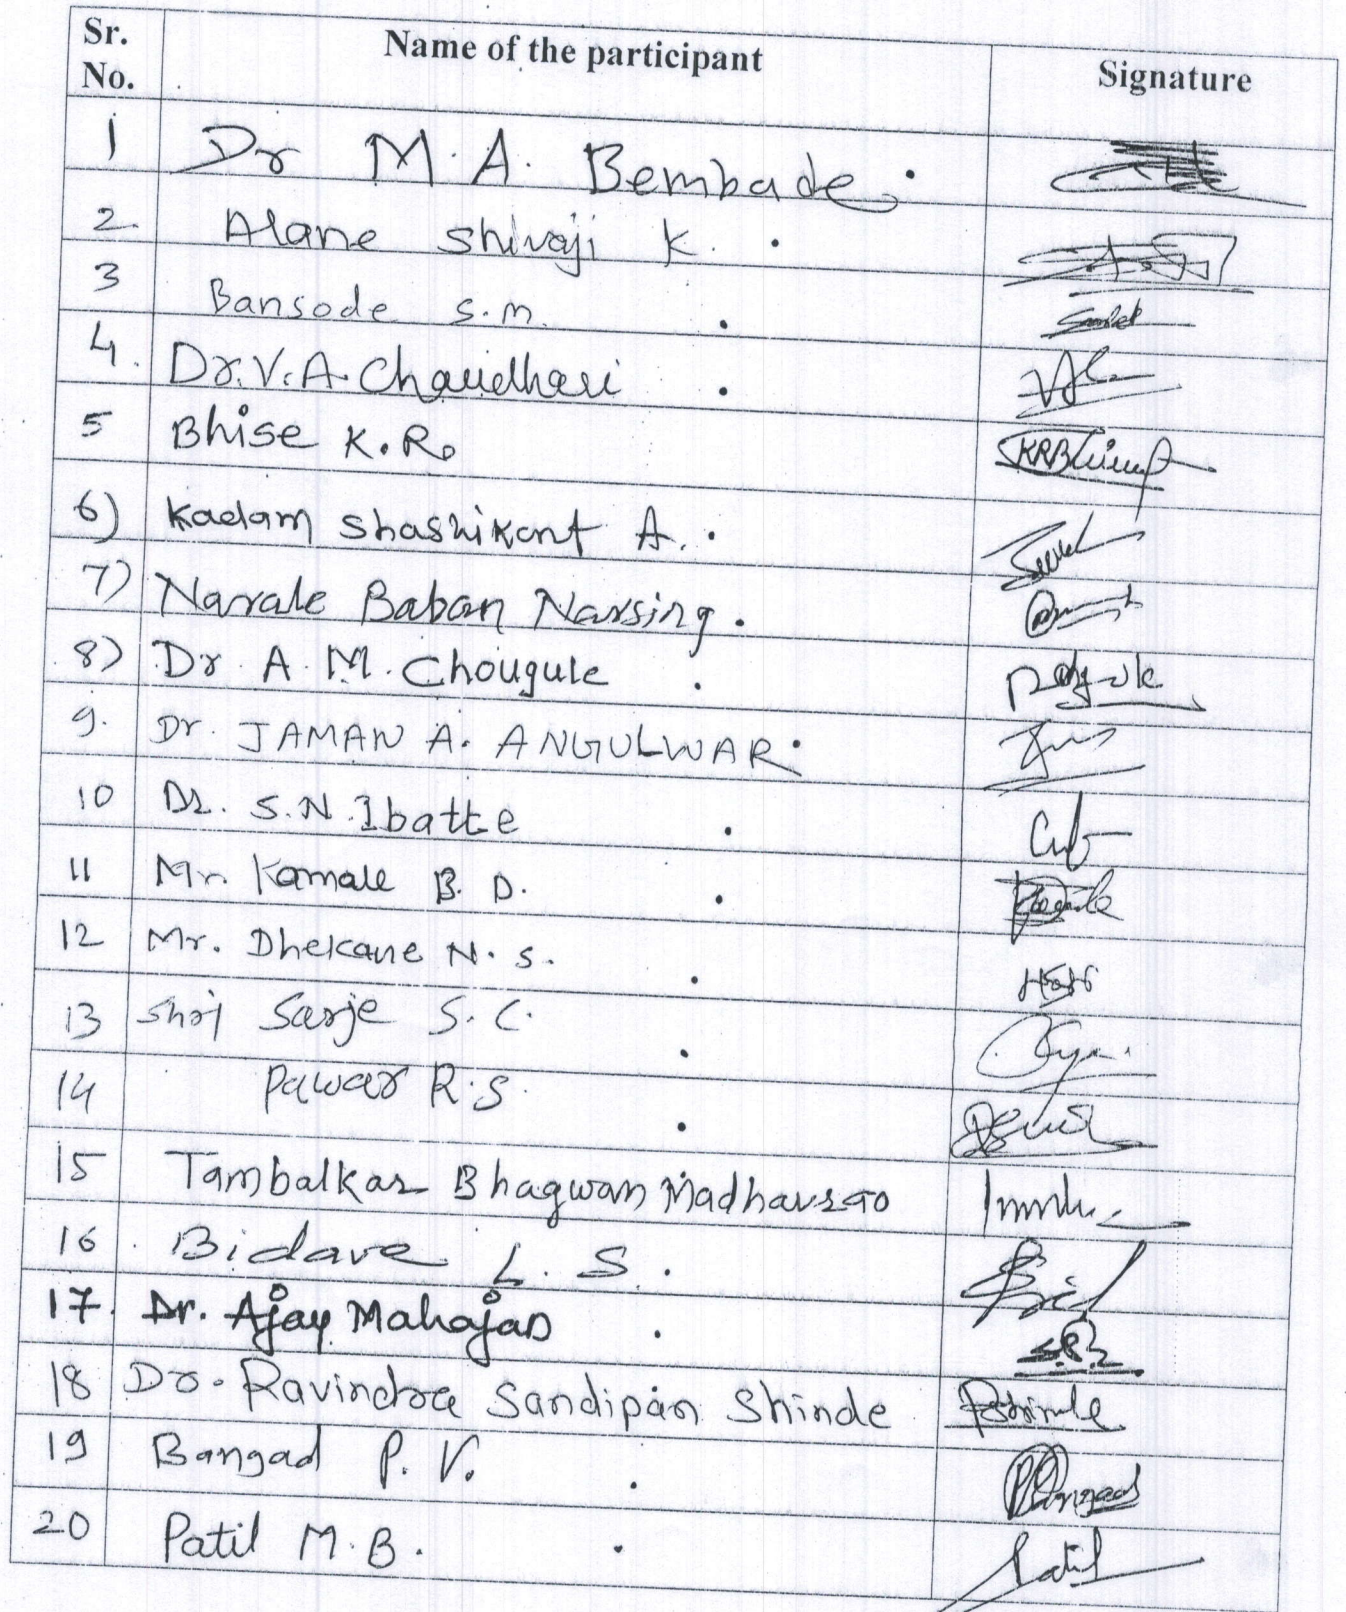 Sr. No. Name of the participant Signature
1 Dr M. A. Bembade.
2. Alane Shivaji K.
3 Bansode S.M.
4. Dr. V. A. Chaudhari
5 Bhise K. R. KRBhise
6) Kadam Shashikant A.
7) Narale Baban Narsing.
8) Dr A. M. Chougule
9. Dr. JAMAN A. ANGULWAR
10 Dr. S. N. Ibatte
11 Mr. Kamale B. D.
12 Mr. Dhekane N. S.
13 Shri Sarje S. C.
14 Pawar R. S.
15 Tambalkar Bhagwan Madhavrao
16 Bidave L. S.
17. Dr. Ajay Mahajan
18 Dr. Ravindra Sandipan Shinde RShinde
19 Bangad P. V. PBangad
20 Patil M. B. Patil